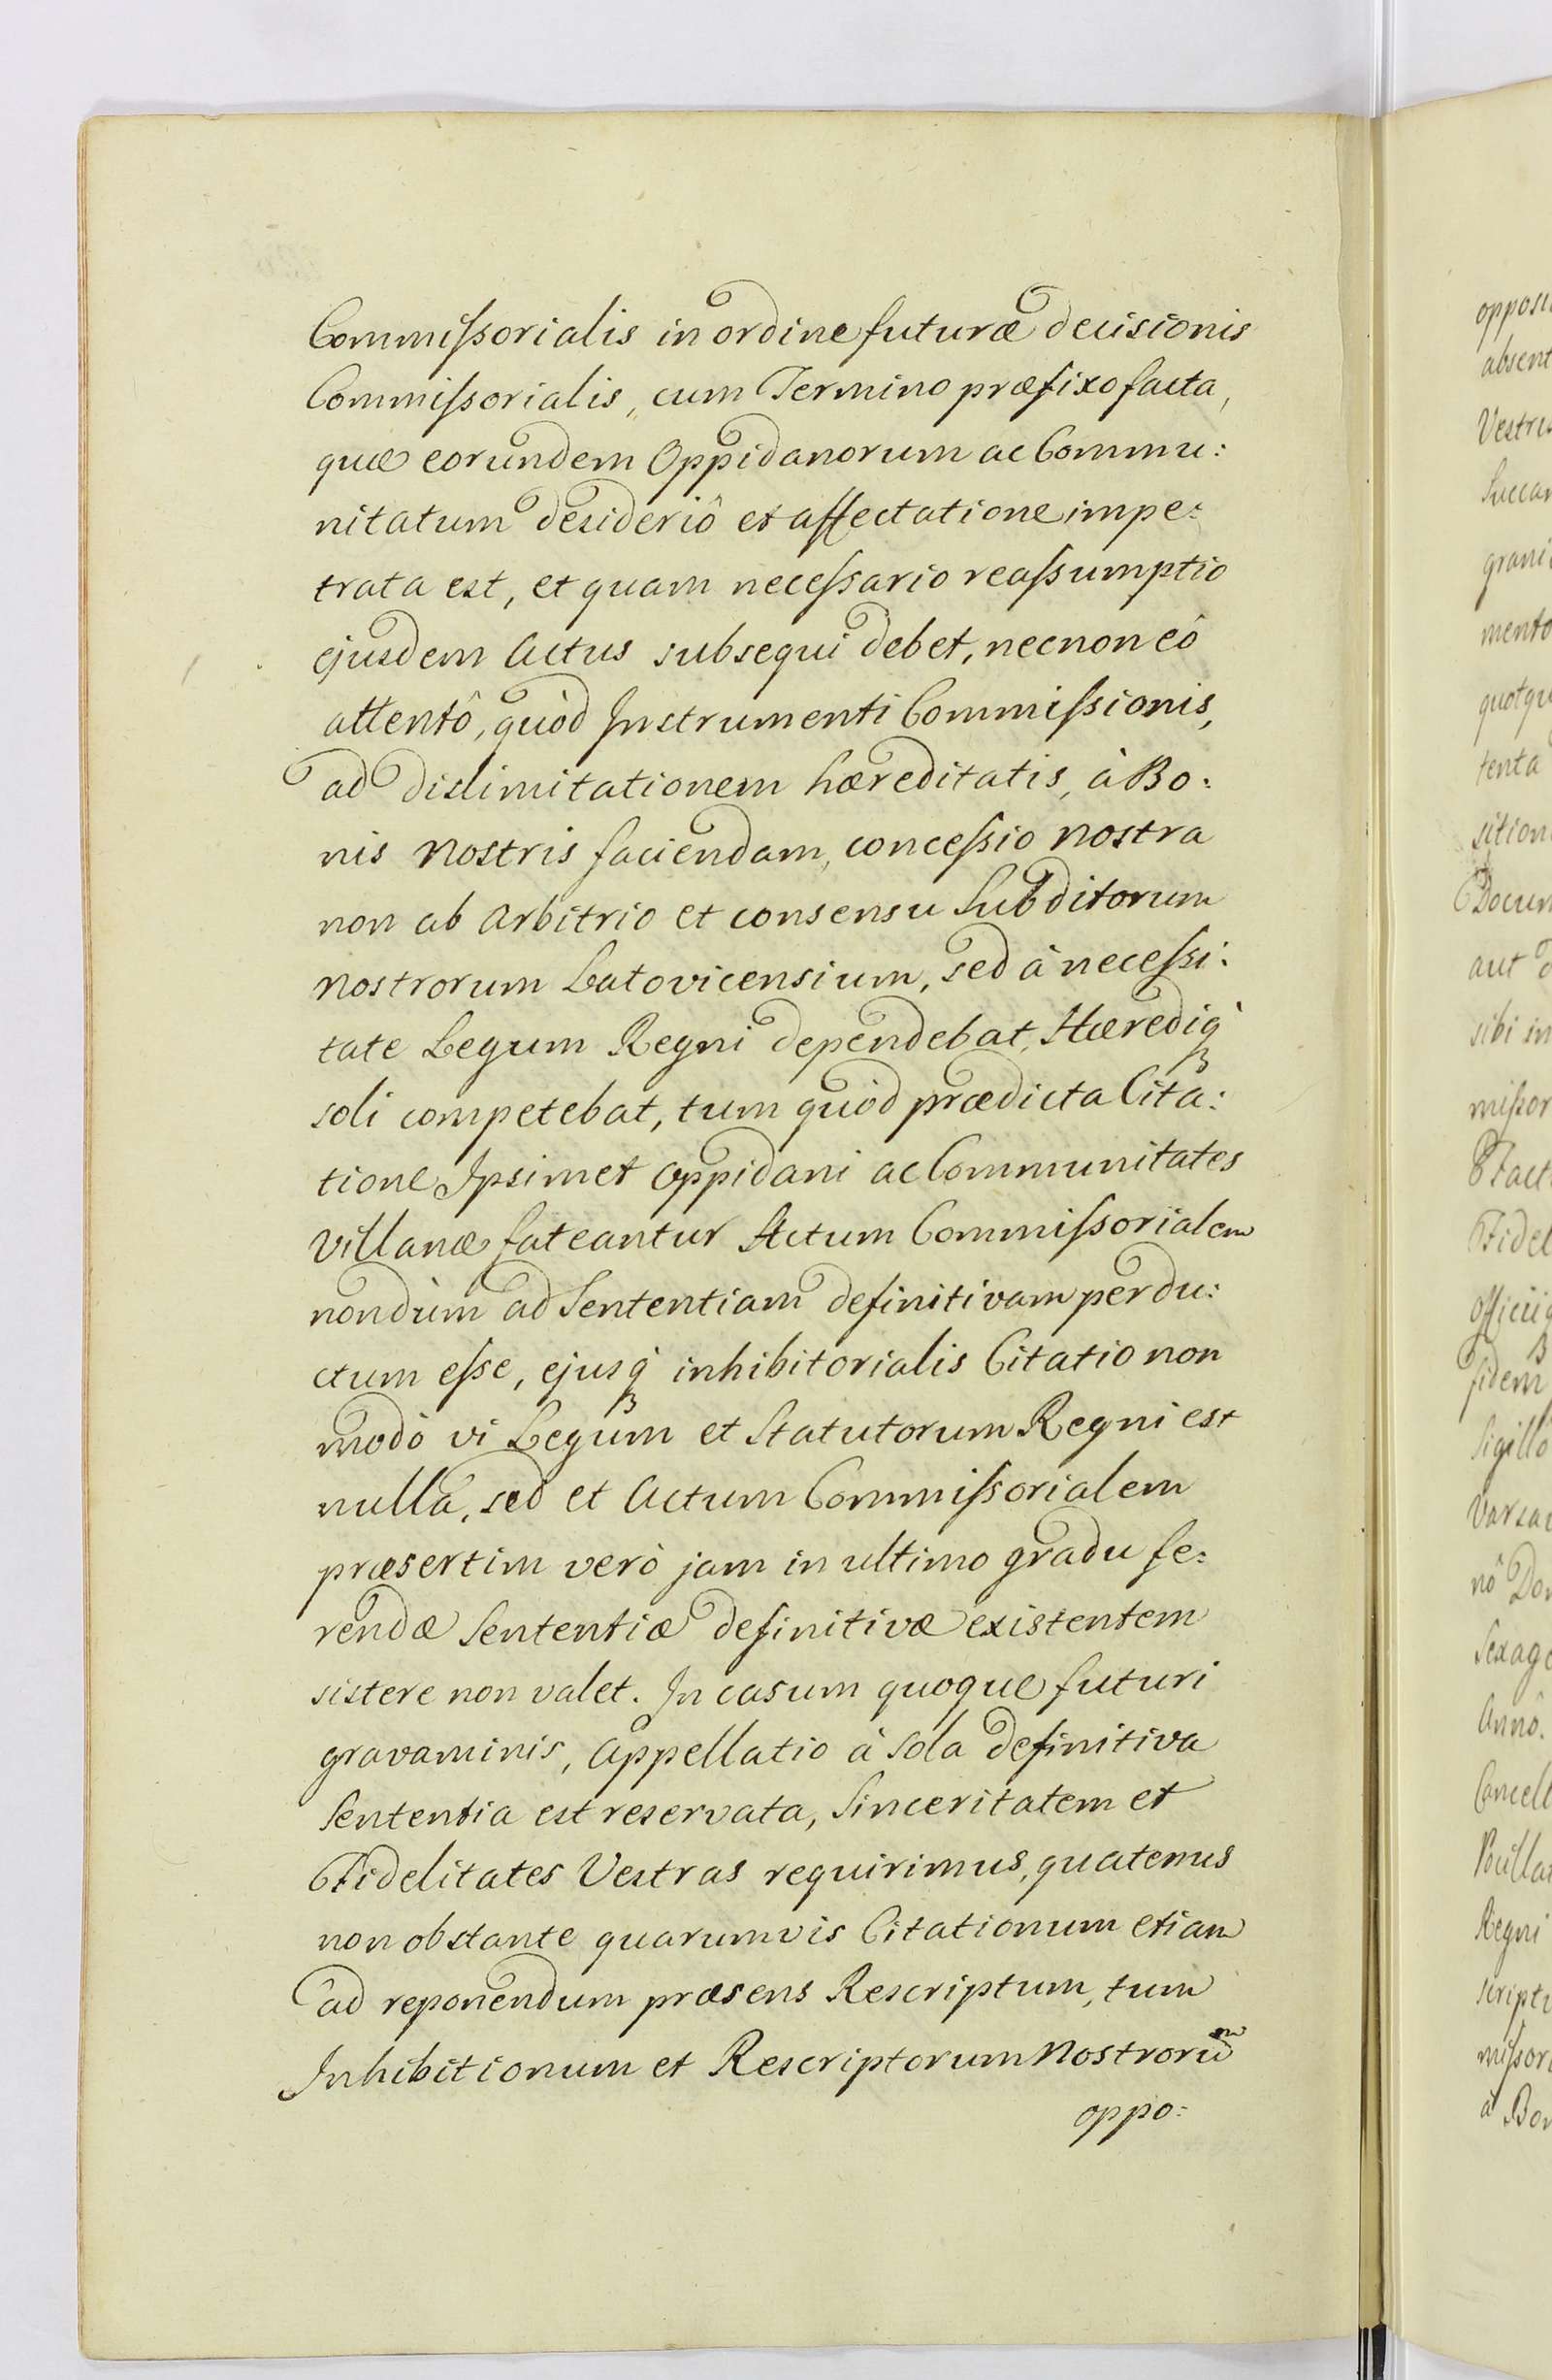 Commißorialis in ordine futuræ decisionis
Commißorialis, cum Termino præfixo facta,
quæ eorundem Oppidanorum ac Commu:
nitatum desideriô et affectatione impe:
trata est, et quam neceßario reaßumptio
ejusdem Actus subsequi debet, necnon eô
attentô, quòd Instrumenti Commißionis,
ad dislimitationem hæreditatis, à Bo:
nis Nostris faciendam, conceßio Nostra
non ab Arbitrio et consensu Subditorum
Nostrorum Latovicensium, sed à neceßi:
tate Legum Regni dependebat, Hærediq́
soli competebat, tum quòd prædicta Cita:
tione Ipsimet Oppidani ac Communitates
Villanæ fateantur Actum Commißorialem
nondùm ad Sententiam definitivam perdu:
ctum eße, ejusq́ inhibitorialis Citatio non
modò vi Legum et Statutorum Regni est
nulla, sed et Actum Commißorialem
præsertim verò jam in ultimo gradu fe:
rendæ Sententiæ definitivæ existentem
sistere non valet. In casum quoque futuri
gravaminis, Appellatio à Sola definitiva
Sententia est reservata, Sinceritatem et
Fidelitates Vestras requirimus, quatenus
non obstante quarumvis Citationum etiam
ad reponendum præsens Rescriptum, tum
Inhibitionum et Rescriptorum Nostrorũm
oppo:
absent
mento
tenta
aut
sibi in
Fidel
fidem
Sigillô
nô Don
Annô.
Cancell
Regni
à Bon